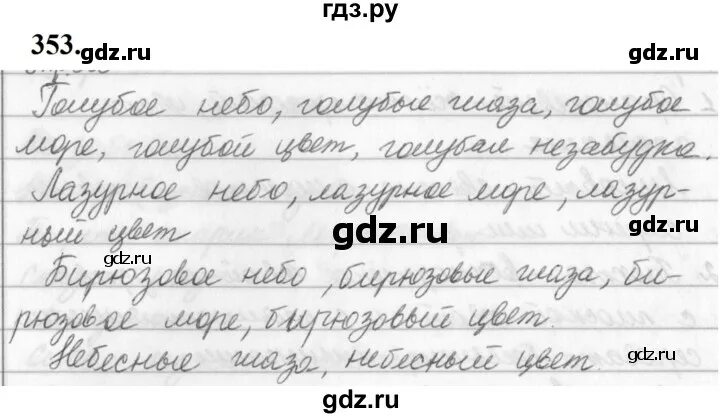 гдз.ру
353. gdz.ru gdz.ru
Голубое небо, голубые глаза, голубое
море, голубой цвет, голубая незабудка.
Лазурное небо, лазурное море, лазур-
ный цвет gdz.ru
gdz.ru
Бирюзовое небо, бирюзовые глаза, би-
рюзовое море, бирюзовый цвет.
Небесные глаза, небесный цвет.
gdz.ru gdz.ru